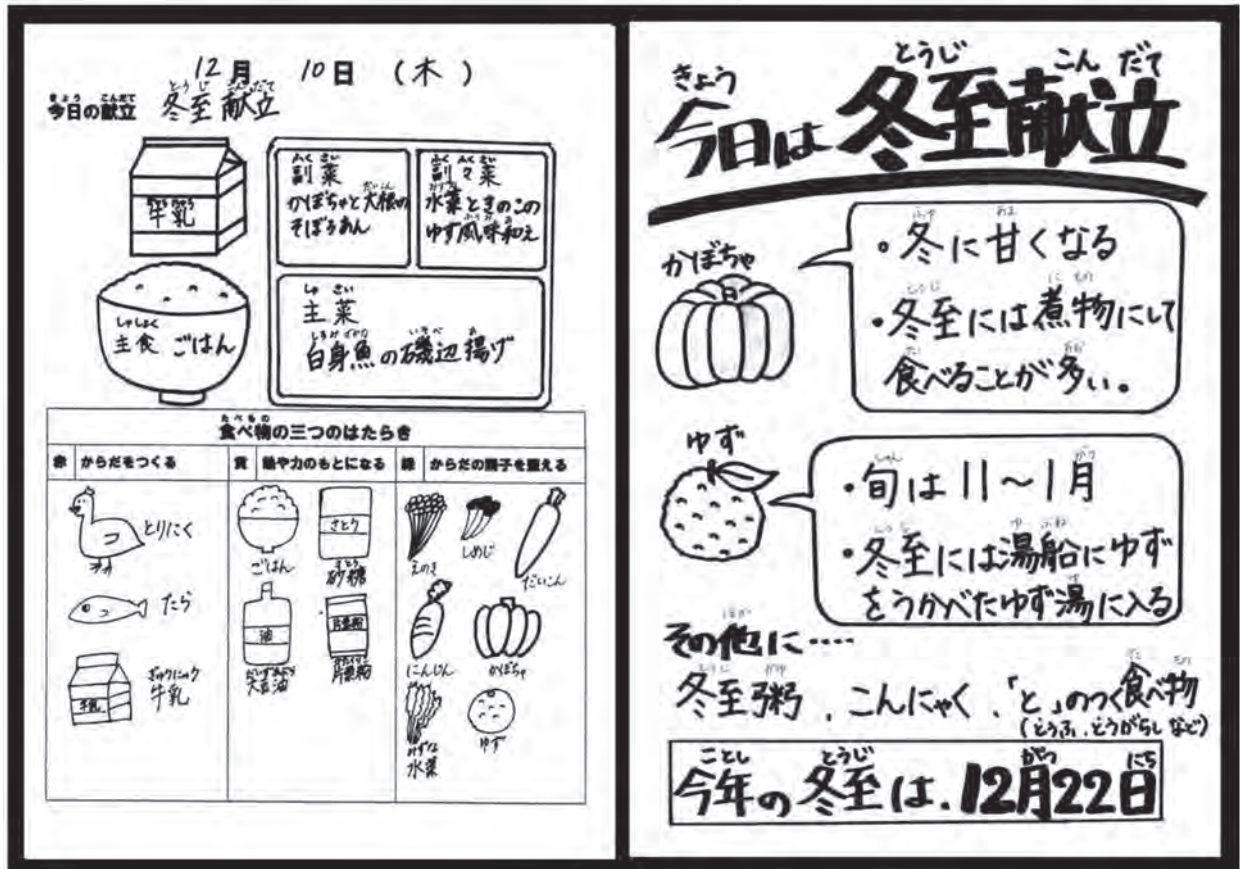 12月 10日 (木)
今日の献立 冬至献立
牛乳
主食 ごはん
副菜
かぼちゃと大根の
そぼろあん
副々菜
水菜ときのこの
ゆず風味和え
主菜
白身魚の磯辺揚げ
食べ物の三つのはたらき
赤 からだをつくる
黄 熱や力のもとになる
緑 からだの調子を整える
とりにく
たら
牛乳
ごはん
さとう
砂糖
油
大豆油
片栗粉
片栗粉
えのき
しめじ
だいこん
にんじん
かぼちゃ
水菜
ゆず
今日は冬至献立
かぼちゃ
・冬に甘くなる
・冬至には煮物にして
食べることが多い。
ゆず
・旬は11～1月
・冬至には湯船にゆず
をうかべたゆず湯に入る
その他に‥‥
冬至粥、こんにゃく、「と」のつく食べ物
(とうふ、とうがらし など)
今年の冬至は、12月22日